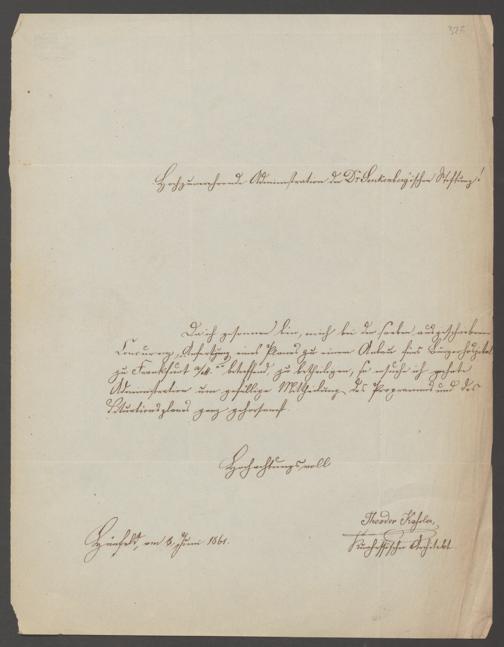 376
Hochzuverehrende Administration der Dr Senkenbergischen Stiftung!
Da ich gesonnen bin, mich bei der soeben ausgeschriebenen
Concurrenz, Anfertigung eines Planes zu einem Anbau fürs Bürgerhospital
zu Frankfurt a/M. betreffend, zu betheiligen, so ersuche ich geehrte
Administration um gefällige Mittheilung des Programms und des
Situationsplans ganz gehorsamst.
Hochachtungsvoll
Theodor
Hünfeld, am 8. Juni 1861.
Kurhessischer Architekt